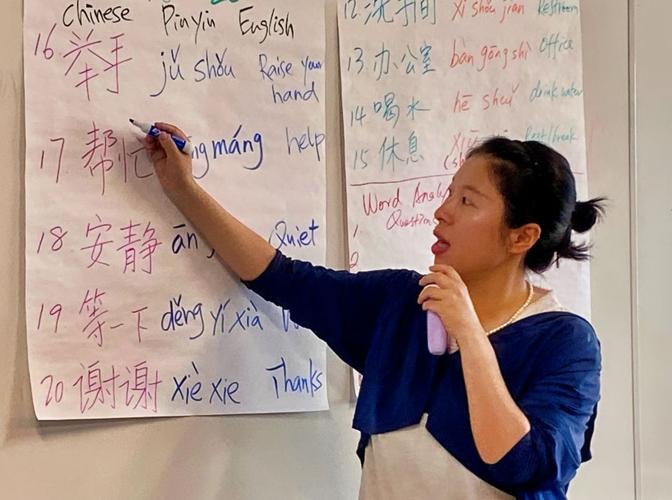 Chinese Pinyin English
16. 举手 jǔ shǒu Raise your
hand
17 帮忙 máng help
18 安静 ān Quiet
19 等一下 děng yí xià
20 谢谢 xiè xie Thanks
12. 洗手间 xǐ shǒu jiān Restroom
13. 办公室 bàn gōng shì office
14 喝水 hē shuǐ drink water
15 休息 Rest/break
Word
Question
1
2